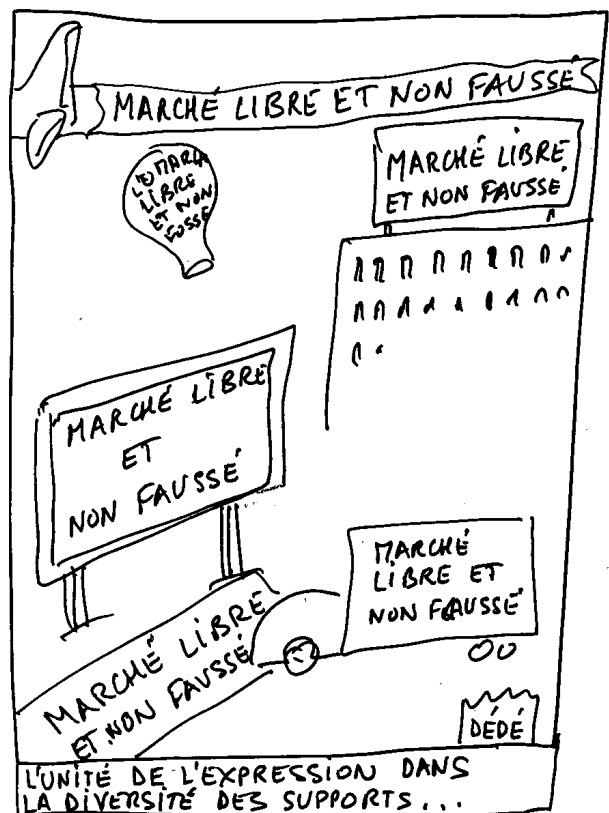 MARCHÉ LIBRE ET NON FAUSSÉ
MARCHÉ LIBRE
ET NON FAUSSÉ
LIBRE
ET NON
MARCHÉ LIBRE
ET
NON FAUSSÉ
MARCHÉ
LIBRE ET
NON FAUSSÉ
MARCHÉ LIBRE
ET NON FAUSSÉ
DÉDÉ
L'UNITÉ DE L'EXPRESSION DANS
LA DIVERSITÉ DES SUPPORTS...